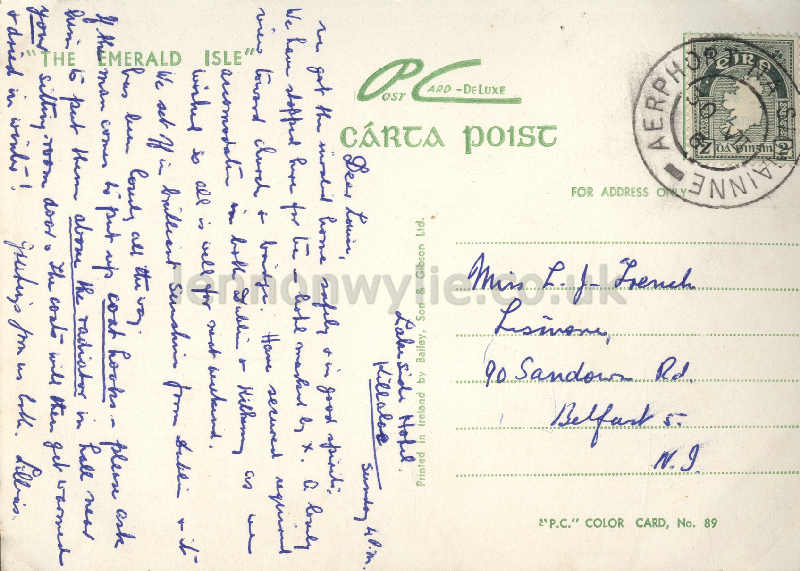 "THE EMERALD ISLE"
POST CARD-DELUXE
CÁRTA POIST
FOR ADDRESS ONLY
AERPHORT NA SIONAINNE
ÉIRE
Lakeside Hotel.
Killaloe
Sunday 4 p.m.
Dear Louie,
We got the invalid home safely & in good spirits.
We have stopped here for tea – hotel marked by X. A lovely
view toward church & boats. Have secured required
accomodation in both Dublin & Kilkenny as we
wished so all is well for next weekend.
We set off in brilliant sunshine from Dublin & it
has been lovely all the way.
If the man comes to put up coat hooks – please ask
him to put them above the radiator in hall near
your sitting-room door. The coats will then get warmed
& dried in winter! Greetings from us both. Lillias.
Miss L. J. French
Lismore,
90 Sandown Rd.
Belfast 5.
N. I.
Printed in Ireland by Bailey, Son & Gibson Ltd.
"P.C." COLOR CARD, No. 89
lennonwylie.co.uk